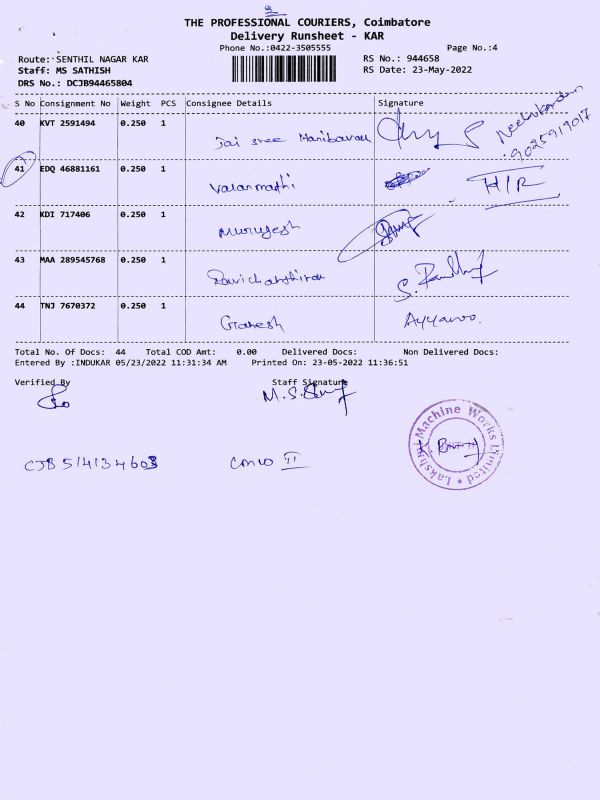 THE PROFESSIONAL COURIERS, Coimbatore
Delivery Runsheet - KAR
Phone No.:0422-3505555
Page No.:4
Route: SENTHIL NAGAR KAR
RS No.: 944658
Staff: MS SATHISH
RS Date: 23-May-2022
DRS No.: DCJB94465804
S No Consignment No Weight PCS Consignee Details Signature
40 KVT 2591494 0.250 1 Jai sree Haribavan
9025919017
41 EDQ 46881161 0.250 1 Valarmathi H/R
42 KDI 717406 0.250 1 Murugesh
43 MAA 289545768 0.250 1 Ravichanthiran
44 TNJ 7670372 0.250 1 Ganesh Ayyavoo.
Total No. Of Docs: 44 Total COD Amt: 0.00 Delivered Docs: Non Delivered Docs:
Entered By :INDUKAR 05/23/2022 11:31:34 AM Printed On: 23-05-2022 11:36:51
Verified By Staff Signature
Lakshmi Machine Works Limited
CJB 514134603 II